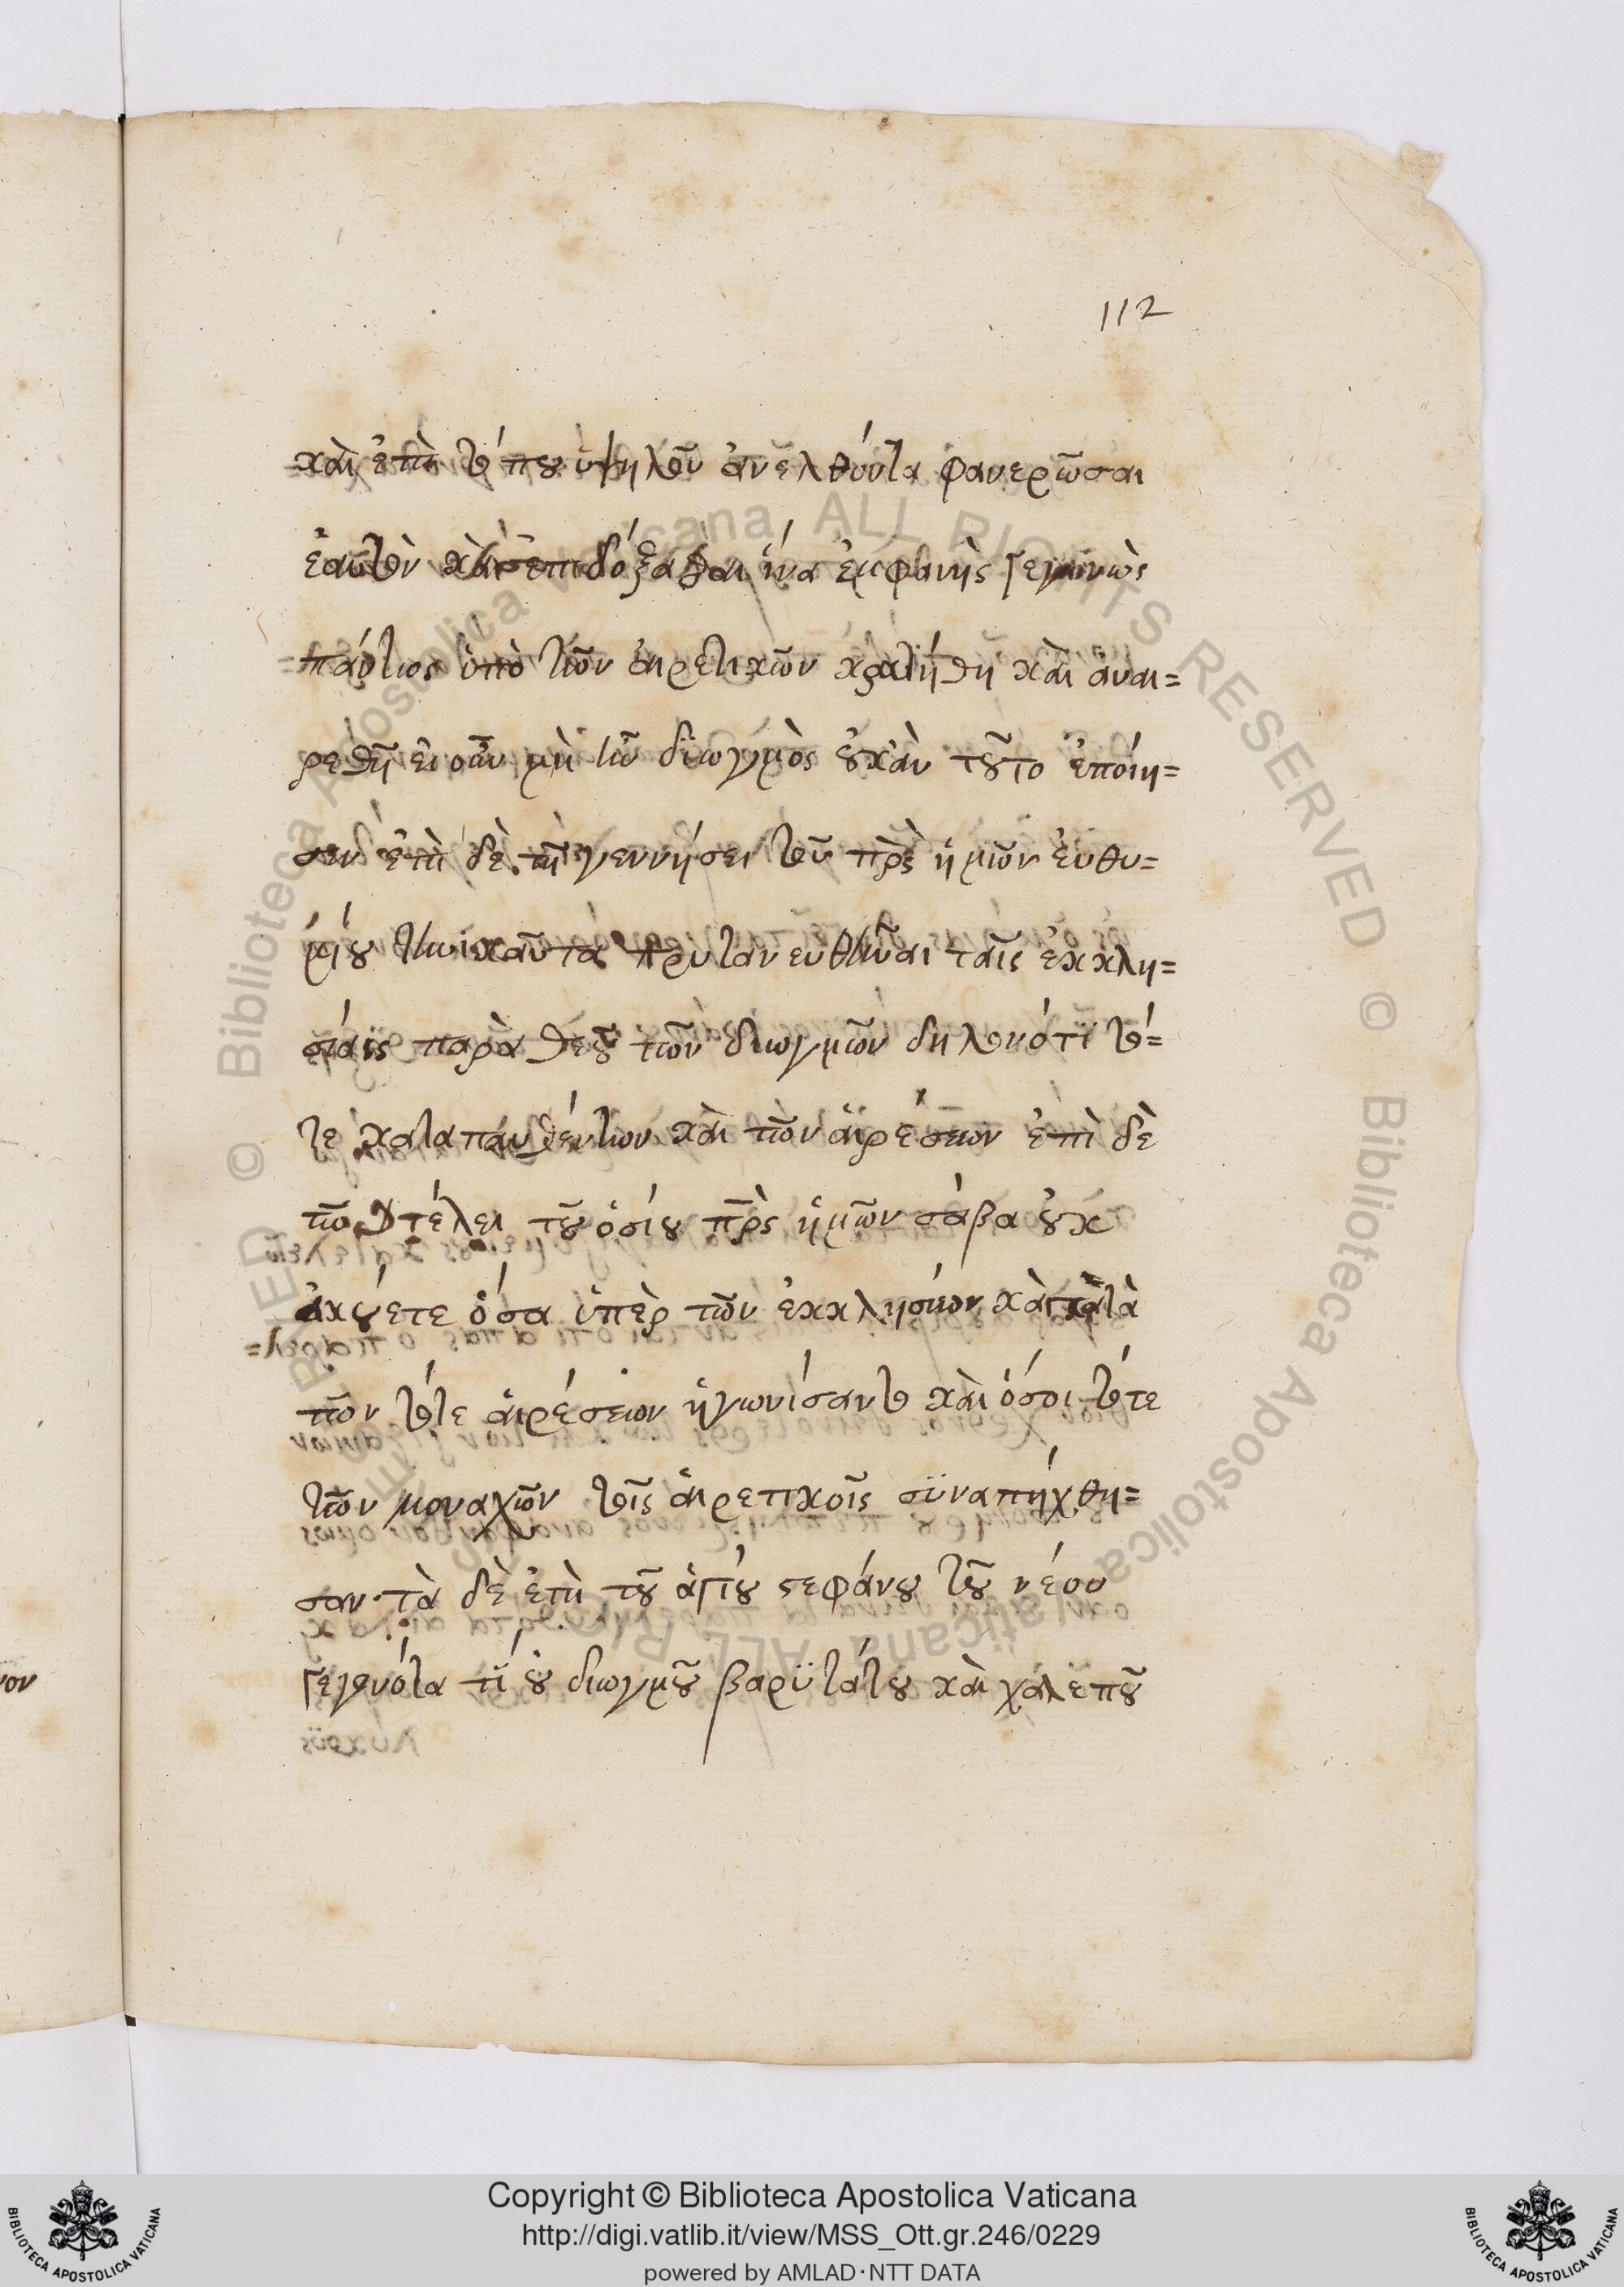 112
καὶ ἐπὶ τόπου ὑψηλοῦ ἀνελθόντα φανερῶσαι
ἑαυτὸν καὶ ἐπιδόξασθαι ἵνα ἐμφανὴς γεγονὼς
πάντως ὑπὸ τῶν αἱρετικῶν κρατήθῃ καὶ ἀναι=
ρεθῇ εἰ οὖν μὴ ἦν διωγμὸς οὐκ ἂν τοῦτο ἐποίη=
σεν ἐπὶ δὲ τῇ γεννήσει τοῦ πρς ἡμῶν εὐθυ=
μίου πρυτανευθῆναι ταῖς ἐκκλη=
σίαις παρὰ θεοῦ τῶν διωγμῶν δηλονότι τό=
τε καταπαυθέντων καὶ τῶν αἱρέσεων ἐπὶ δὲ
τῷ τέλει τοῦ ὁσίου πρς ἡμῶν σάβα οὐκ
ἀκούετε ὅσα ὑπὲρ τῶν ἐκκλησιῶν καὶ κατὰ
τῶν τότε αἱρέσεων ἠγωνίσαντο καὶ ὅσοι τότε
τῶν μοναχῶν τοῖς αἱρετικοῖς συναπήχθη=
σαν· τὰ δὲ ἐπὶ τοῦ ἁγίου στεφάνου τοῦ νέου
γεγονότα τί οὐ διωγμοῦ βαρϋτάτου καὶ χαλεποῦ
νον
Copyright © Biblioteca Apostolica Vaticana
http://digi.vatlib.it/view/MSS_Ott.gr.246/0229
powered by AMLAD·NTT DATA
BIBLIOTECA APOSTOLICA VATICANA
BIBLIOTECA APOSTOLICA VATICANA
© Biblioteca Apostolica Vaticana ALL RIGHTS RESERVED © Biblioteca Apostolica Vaticana ALL RIGHTS RESERVED